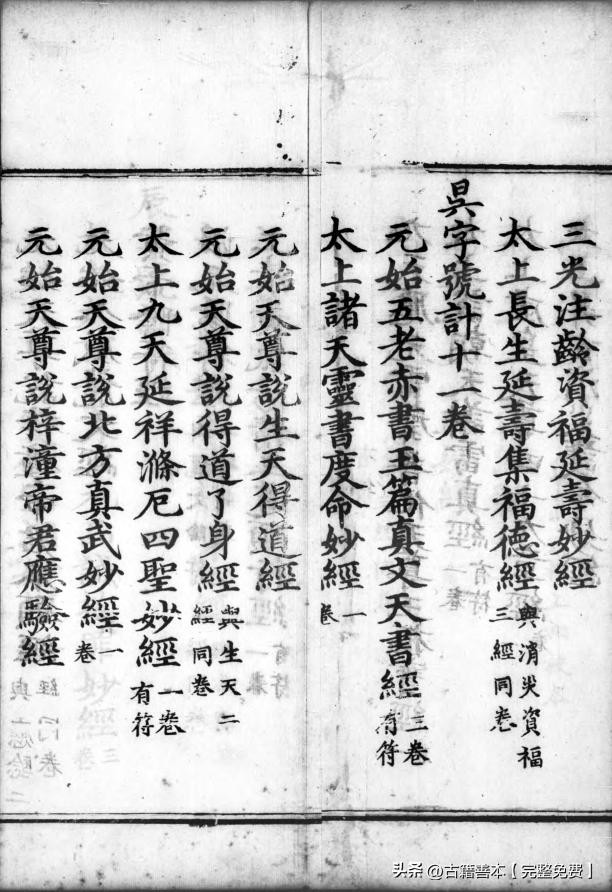 三光注齡資福延壽妙經
太上長生延壽集福德經 與消災資福三經同卷
昃字號計十一卷
元始五老赤書玉篇真文天書經 三卷有符
太上諸天靈書度命妙經 一卷
元始天尊說生天得道經
元始天尊說得道了身經 與生天二經同卷
太上九天延祥滌厄四聖妙經 一卷有符
元始天尊說北方真武妙經 一卷
元始天尊說梓潼帝君應驗經
头条 @古籍善本【完整免费】